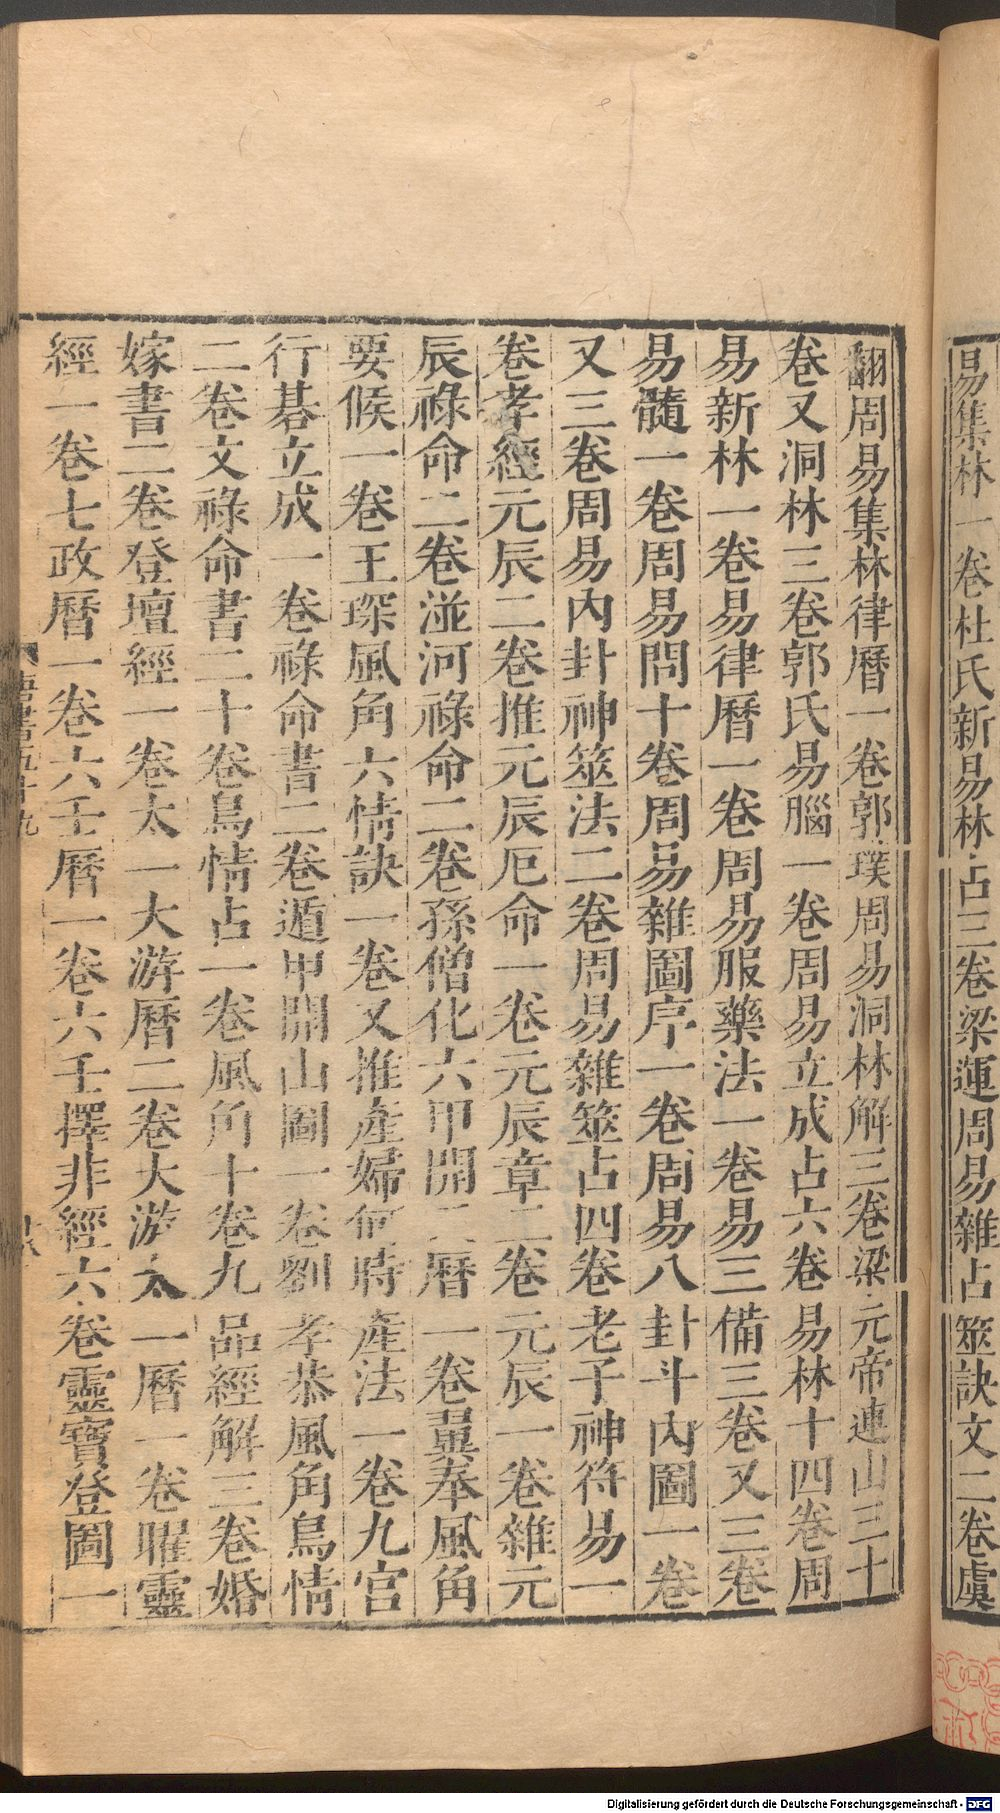 易集林一卷杜氏新易林占三卷梁運周易雜占筮訣文二卷虞
翻周易集林律曆一卷郭璞周易洞林解三卷梁元帝連山三十
卷又洞林三卷郭氏易腦一卷周易立成占六卷易林十四卷周
易新林一卷易律曆一卷周易服藥法一卷易三備三卷又三卷
易髓一卷周易問十卷周易雜圖序一卷周易八卦斗內圖一卷
又三卷周易內卦神筮法二卷周易雜筮占四卷老子神符易一
卷孝經元辰二卷推元辰厄命一卷元辰章二卷元辰一卷雜元
辰祿命二卷湴河祿命二卷孫僧化六甲開天曆一卷翼奉風角
要候一卷王琛風角六情訣一卷又推產婦何時產法一卷九宮
行棊立成一卷祿命書二卷遁甲開山圖一卷劉孝恭風角鳥情
二卷文祿命書二十卷鳥情占一卷風角十卷九品經解三卷婚
嫁書二卷登壇經一卷太一大游曆二卷大游太一曆一卷曜靈
經一卷七政曆一卷六壬曆一卷六壬擇非經六卷靈寶登圖一
唐書五十九
Digitalisierung gefördert durch die Deutsche Forschungsgemeinschaft - DFG